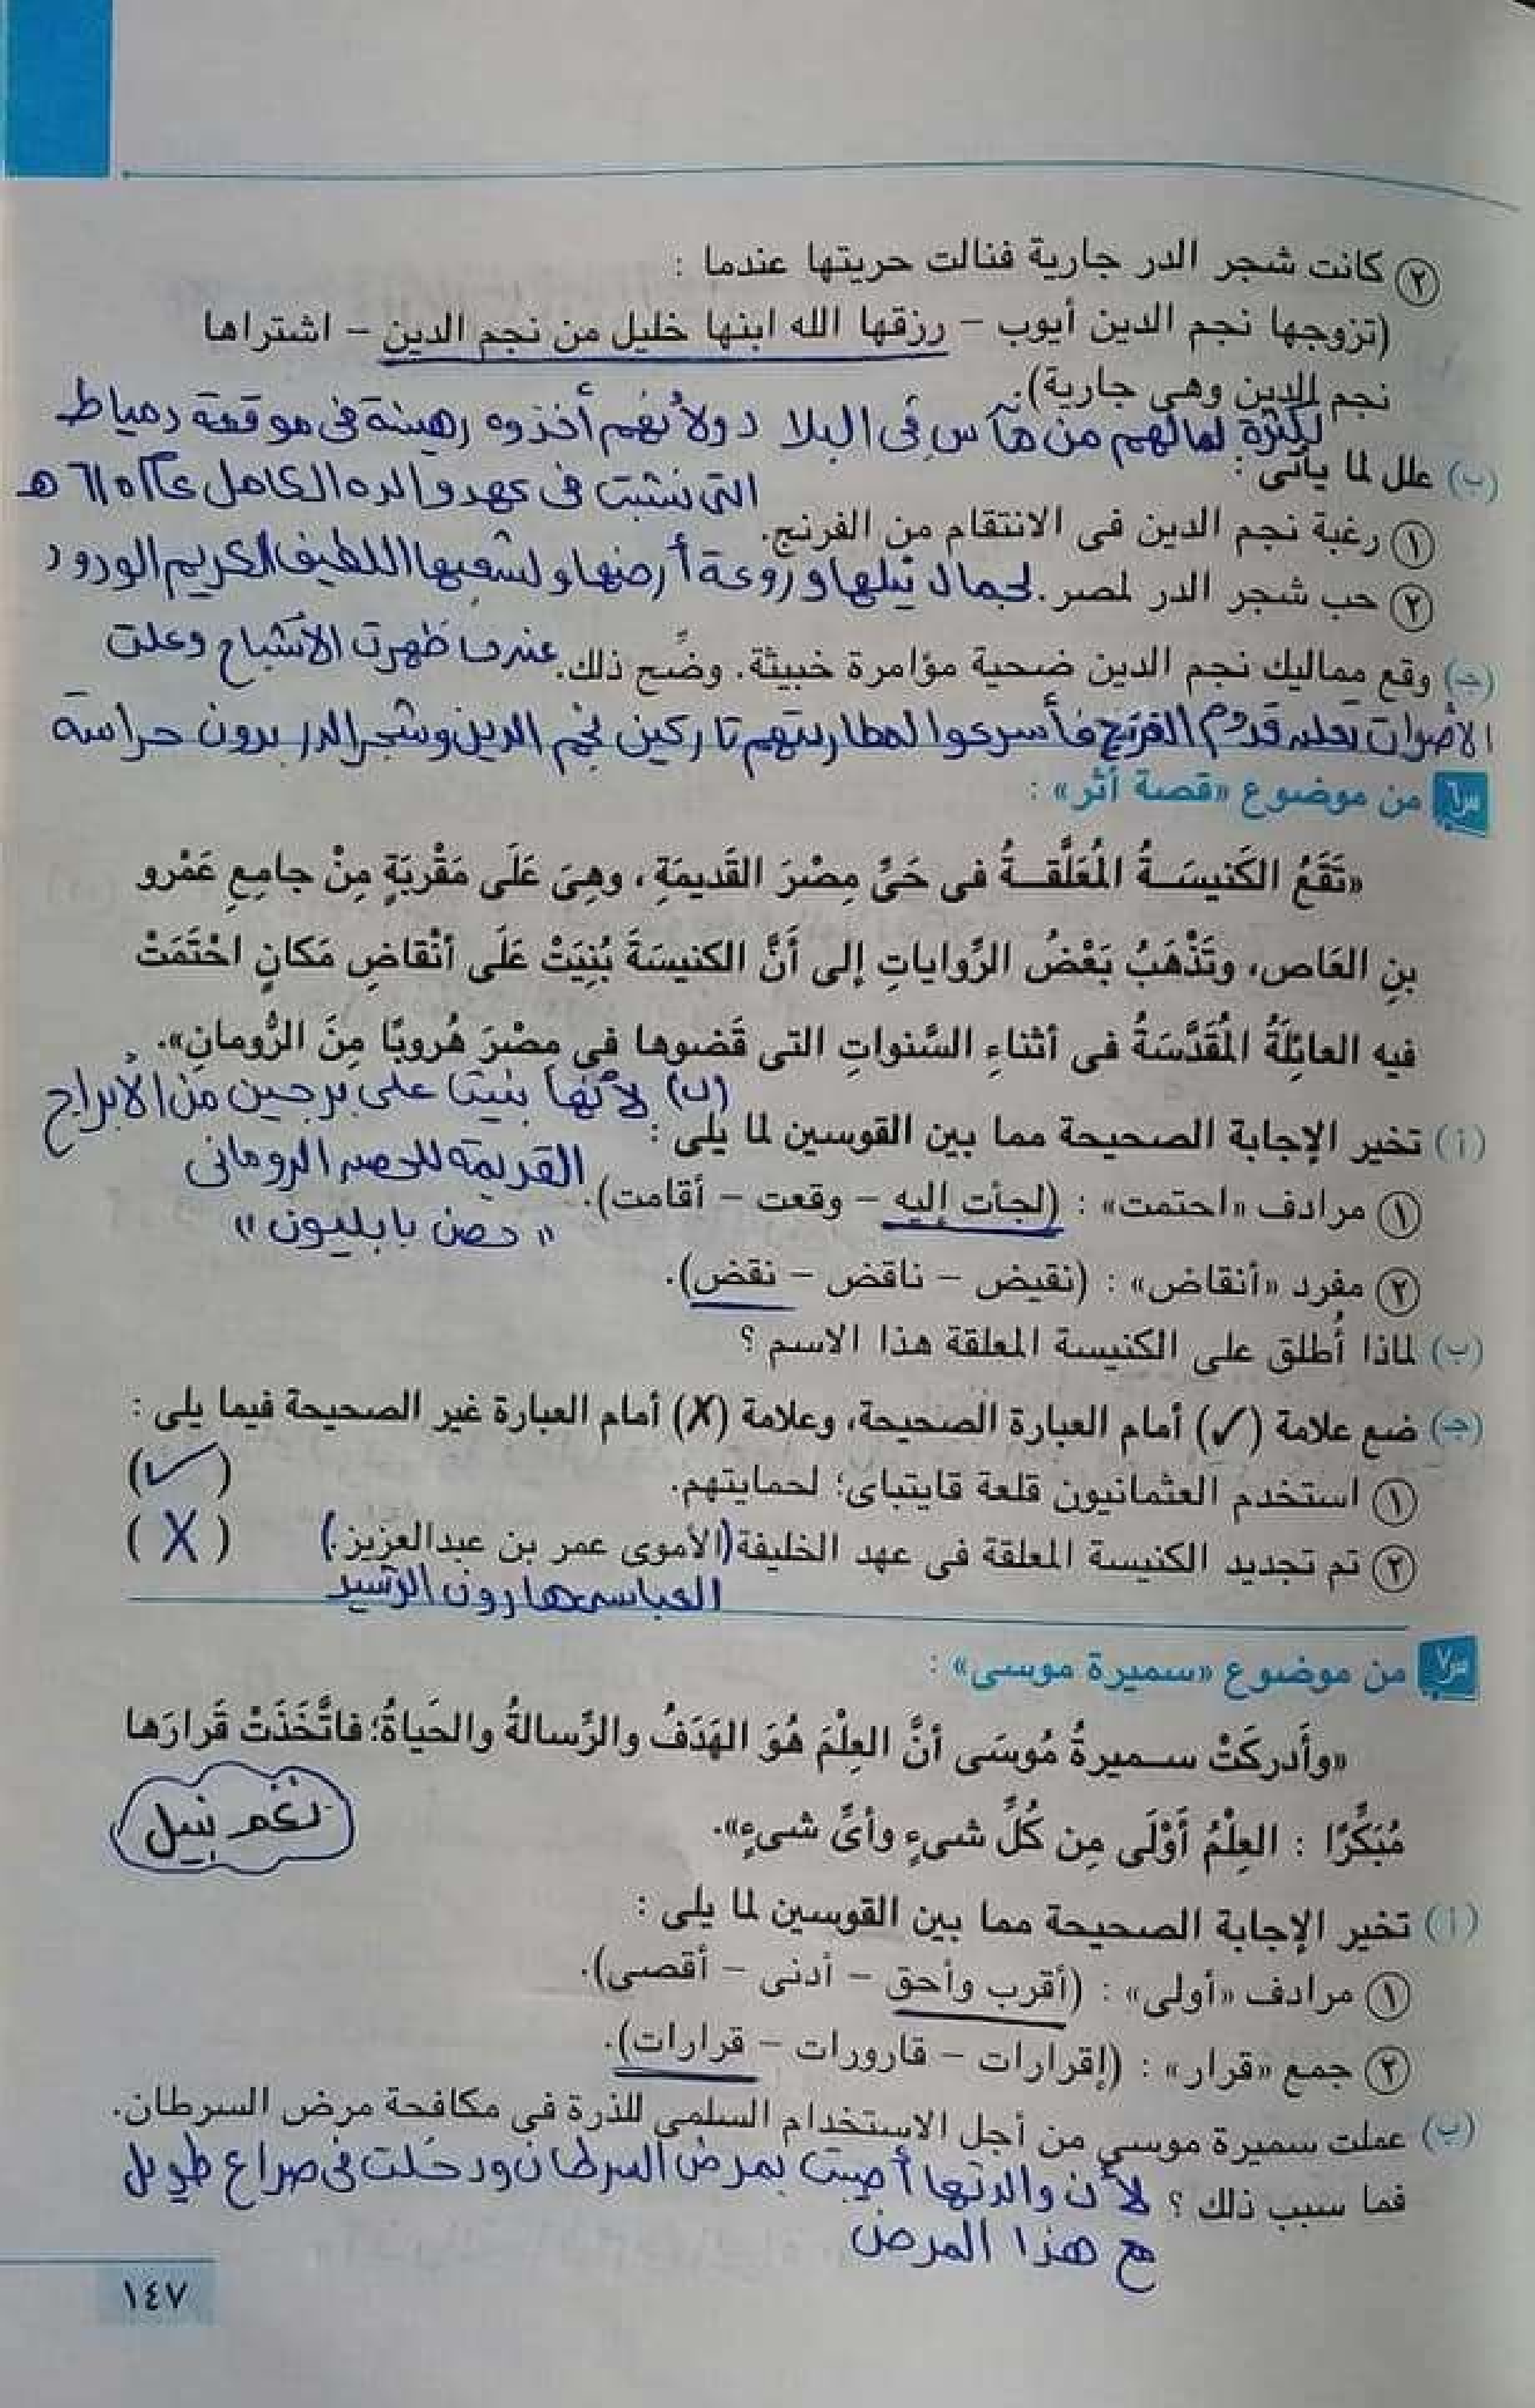 ٢ كانت شجر الدر جارية فنالت حريتها عندما :
(تزوجها نجم الدين أيوب – رزقها الله ابنها خليل من نجم الدين – اشتراها
نجم الدين وهى جارية).
لكثرة أعمالهم من مآس فى البلاد ولأنهم أخذوه رهينة فى موقعة دمياط
(ب) علل لما يأتى :
التى نشبت فى عهد والده الكامل عام ٦١٥ هـ
١ رغبة نجم الدين فى الانتقام من الفرنج.
٢ حب شجر الدر لمصر. لجمال نيلها وروعة أرضها ولشعبها اللطيف الكريم الودود
(جـ) وقع مماليك نجم الدين ضحية مؤامرة خبيثة. وضِّح ذلك. عندما ظهرت الأشباح وعلت
الأصوات تعلن قدوم الفرنج فأسرعوا لمطاردتهم تاركين نجم الدين وشجر الدر بدون حراسة
س٦ من موضوع «قصة أثر» :
«تَقَعُ الكَنيسَـةُ المُعَلَّقـةُ فى حَىِّ مِصْرَ القَديمَةِ، وهِىَ عَلَى مَقْرَبَةٍ مِنْ جامِعِ عَمْرو
بنِ العَاص، وتَذْهَبُ بَعْضُ الرِّواياتِ إلى أَنَّ الكنيسَةَ بُنِيَتْ عَلَى أنْقاضِ مَكانٍ احْتَمَتْ
فيه العائِلَةُ المُقَدَّسَةُ فى أثناءِ السَّنواتِ التى قَضوها فى مِصْرَ هُروبًا مِنَ الرُّومانِ».
(ب) لأنها بنيت على برجين من الأبراج
(أ) تخير الإجابة الصحيحة مما بين القوسين لما يلى :
القديمة للحصن الرومانى
١ مرادف «احتمت» : (لجأت إليه – وقعت – أقامت).
" حصن بابليون "
٢ مفرد «أنقاض» : (نقيض – ناقض – نقض).
(ب) لماذا أُطلق على الكنيسة المعلقة هذا الاسم ؟
(جـ) ضع علامة (✓) أمام العبارة الصحيحة، وعلامة (X) أمام العبارة غير الصحيحة فيما يلى :
١ استخدم العثمانيون قلعة قايتباى؛ لحمايتهم. (✓)
٢ تم تجديد الكنيسة المعلقة فى عهد الخليفة (الأموى عمر بن عبدالعزيز.) (X)
العباسى هارون الرشيد
س٧ من موضوع «سميرة موسى» :
«وأَدركَتْ سـميرةُ مُوسَى أنَّ العِلْمَ هُوَ الهَدَفُ والرِّسالةُ والحَياةُ؛ فاتَّخَذَتْ قَرارَها
مُبَكِّرًا : العِلْمُ أَوْلَى مِن كُلِّ شىءٍ وأىِّ شىءٍ».
نغم نبيل
(أ) تخير الإجابة الصحيحة مما بين القوسين لما يلى :
١ مرادف «أولى» : (أقرب وأحق – أدنى – أقصى).
٢ جمع «قرار» : (إقرارات – قارورات – قرارات).
(ب) عملت سميرة موسى من أجل الاستخدام السلمى للذرة فى مكافحة مرض السرطان.
فما سبب ذلك ؟ لأن والدتها أصيبت بمرض السرطان ودخلت فى صراع طويل
مع هذا المرض
١٤٧